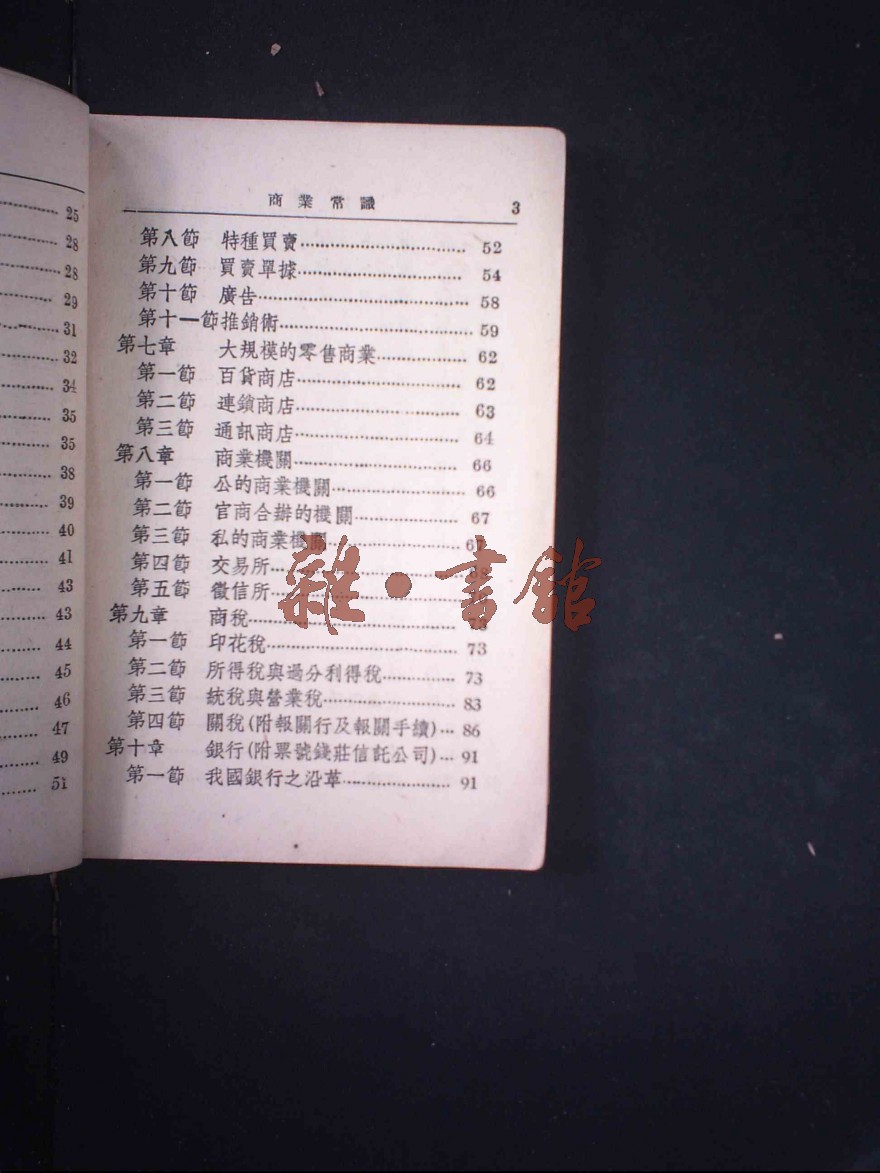 25
28
28
29
31
32
34
35
35
38
39
40
41
43
43
44
45
46
47
49
51
商業常識 3
第八節 特種買賣 52
第九節 買賣單據 54
第十節 廣告 58
第十一節推銷術 59
第七章 大規模的零售商業 62
第一節 百貨商店 62
第二節 連鎖商店 63
第三節 通訊商店 64
第八章 商業機關 66
第一節 公的商業機關 66
第二節 官商合辦的機關 67
第三節 私的商業機關
第四節 交易所
第五節 徵信所
第九章 商稅
第一節 印花稅 73
第二節 所得稅與過分利得稅 73
第三節 統稅與營業稅 83
第四節 關稅(附報關行及報關手續) 86
第十章 銀行(附票號錢莊信託公司) 91
第一節 我國銀行之沿革 91
雜·書館